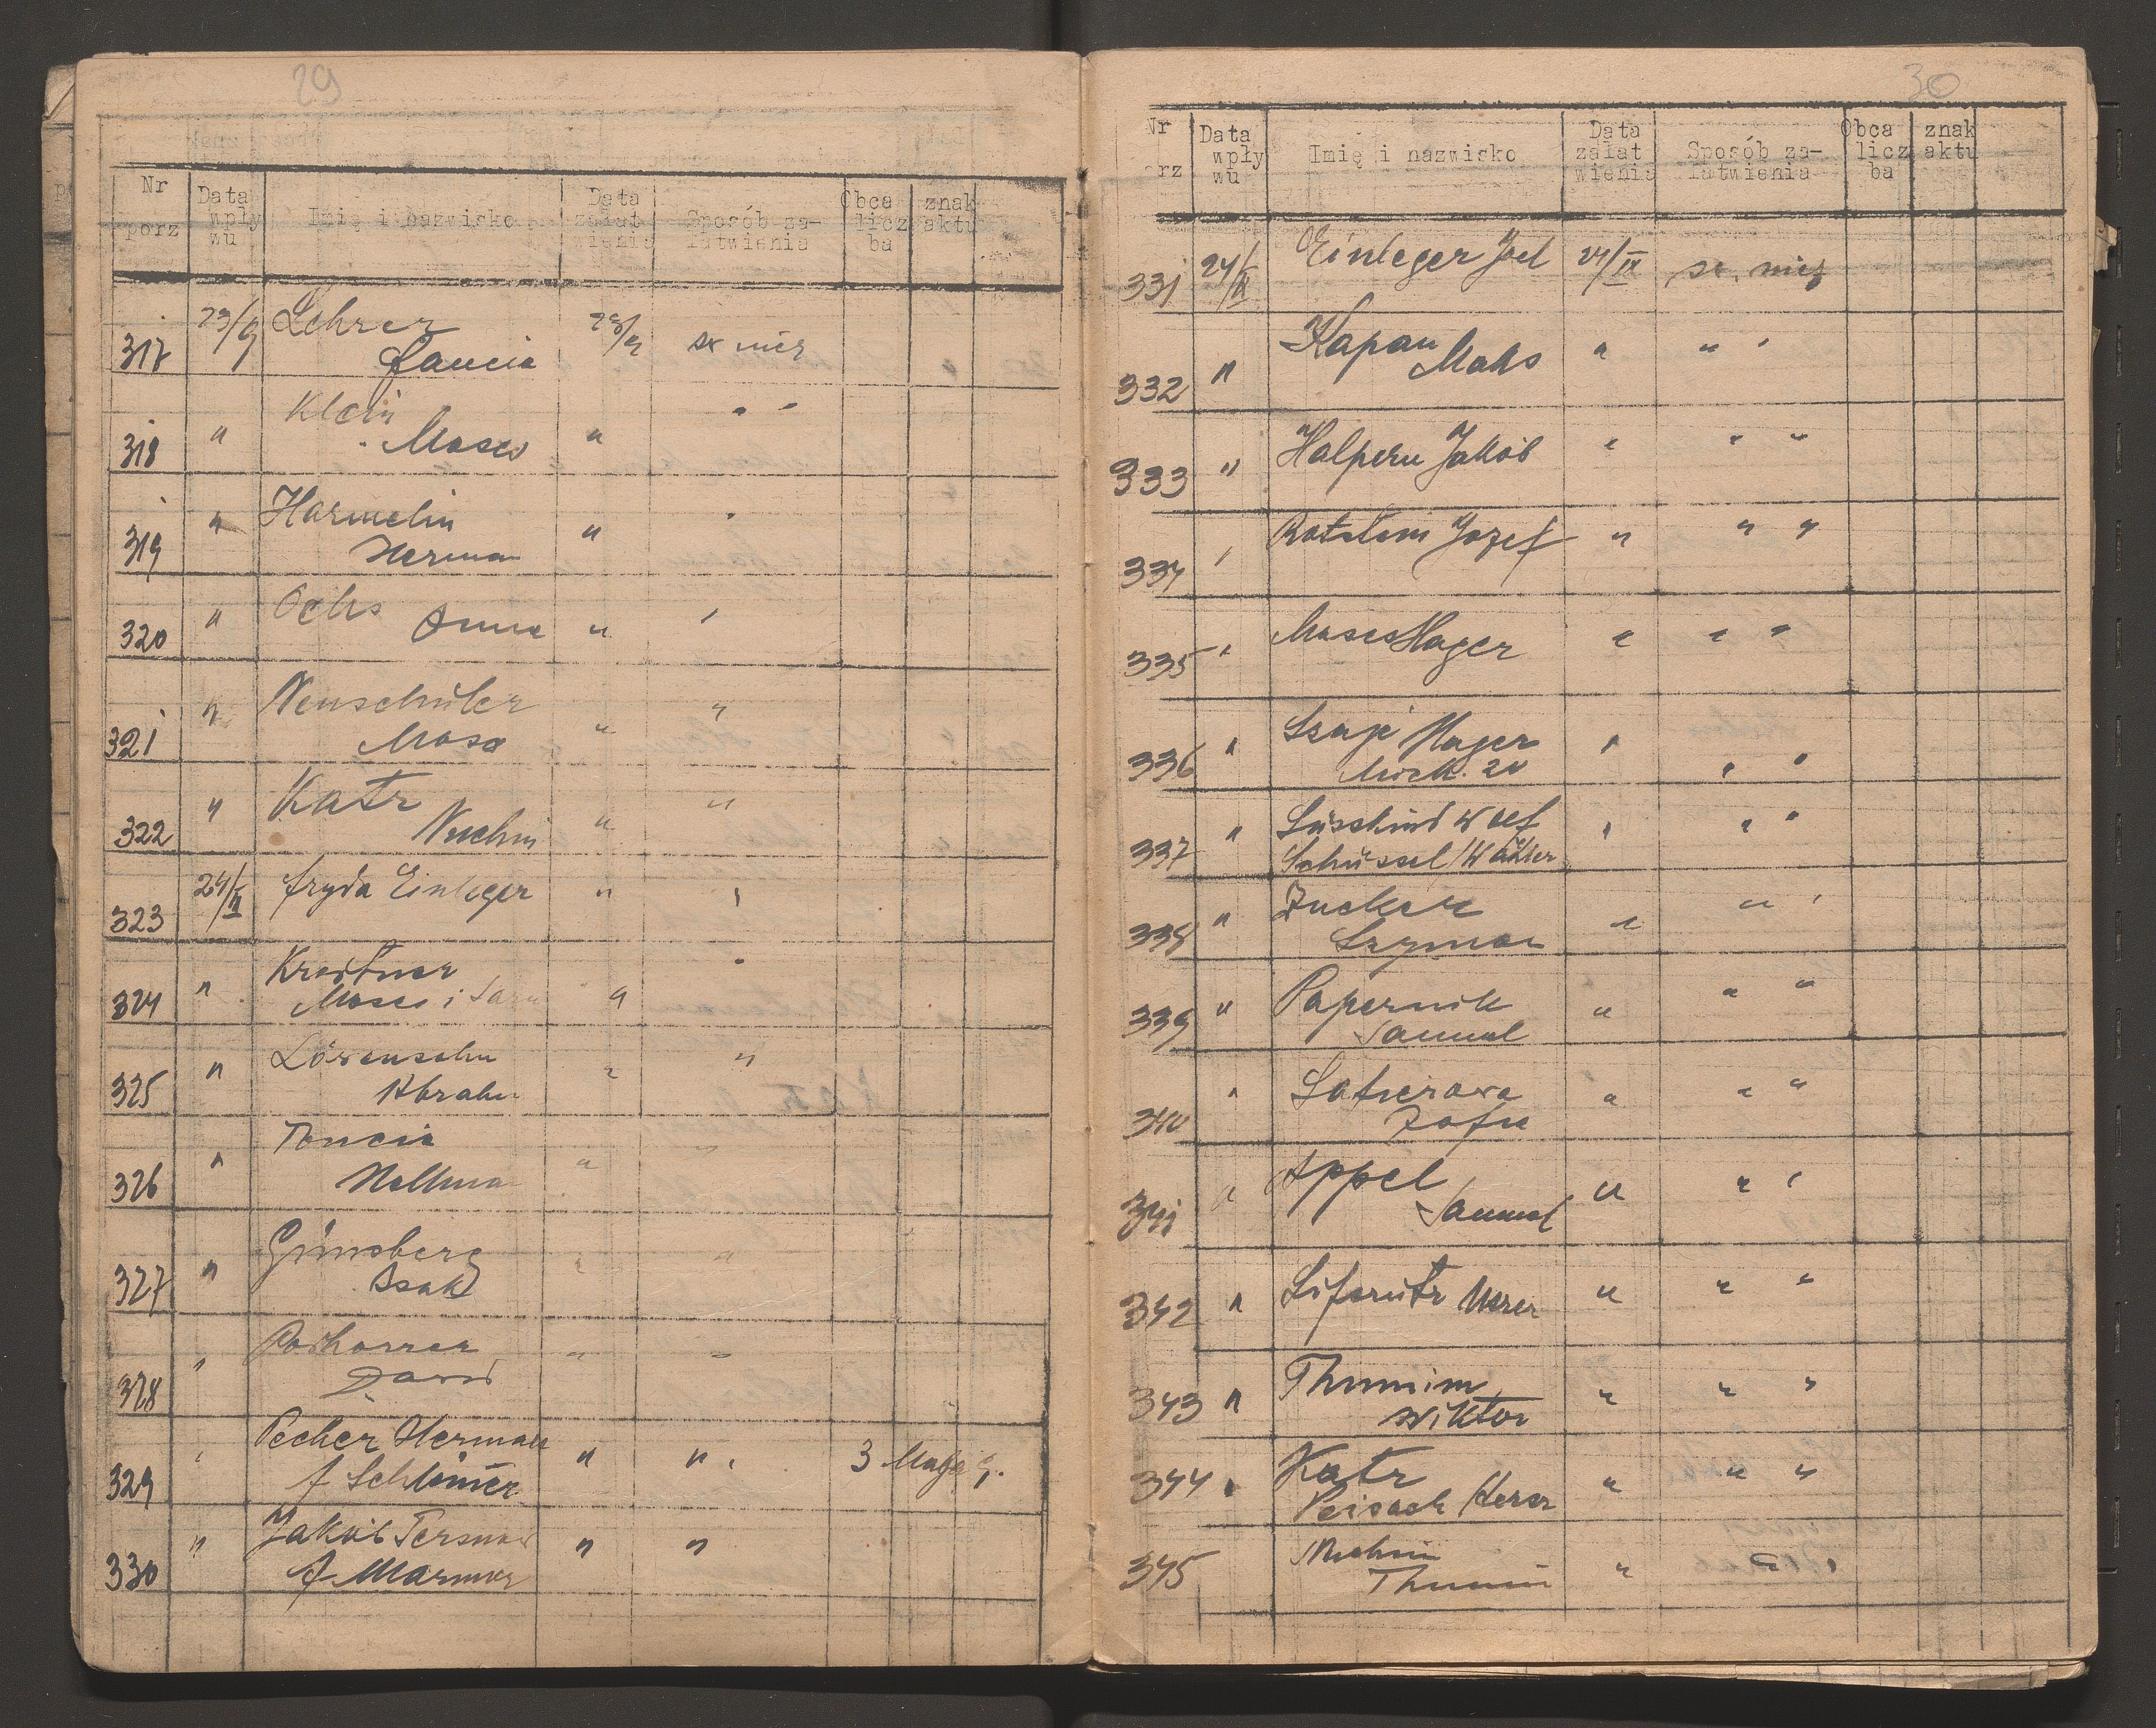 29
Nr porz Data wpły wu Imię i nazwisko Data załat wienia Sposób za- łatwienia Obca licz ba znak aktu
317 23/9 Lehrer 23/9
Fancia
318 " Klein " " "
Moses
319 " Harmelin " "
Herman
320 " Ochs Anna " "
321 " Neuschüler " "
Mose
322 " Katz " "
Nuchim
323 24/IX Fryda Einleger " "
324 " Kreitner " "
Moses i Sara
325 " Löwensohn " "
Abraham
326 " Toncia " "
Hellman
327 " Günsberg " "
Izak
328 " Podhorcer " "
Dawid
329 " Pecher Herman " " " 3
f Schlömer
330 " Jakób " "
f
30
Nr porz Data wpły wu Imię i nazwisko Data załat wienia Sposób za- łatwienia Obca licz ba znak aktu
331 24/IX Einleger Joel 24/IX
332 " Kapau " " "
Maks
333 " Halpern Jakób " " "
334 " Rotstein Jozef " " "
335 " Moses Hager " " "
336 " Szaje Hager " " "
Mick. 20
337 " Süsskind Wolf " " "
Schüssel /Wähler
338 " Zucker " " "
Szymon
339 " Papernik " " "
Samuel
340 " " " "
Zofia
341 " Appel " " "
Samuel
342 " " " "
343 " Thumim " " "
Wiktor
344 " Katz " " "
Peisach Herz
345 " " "
Thumim